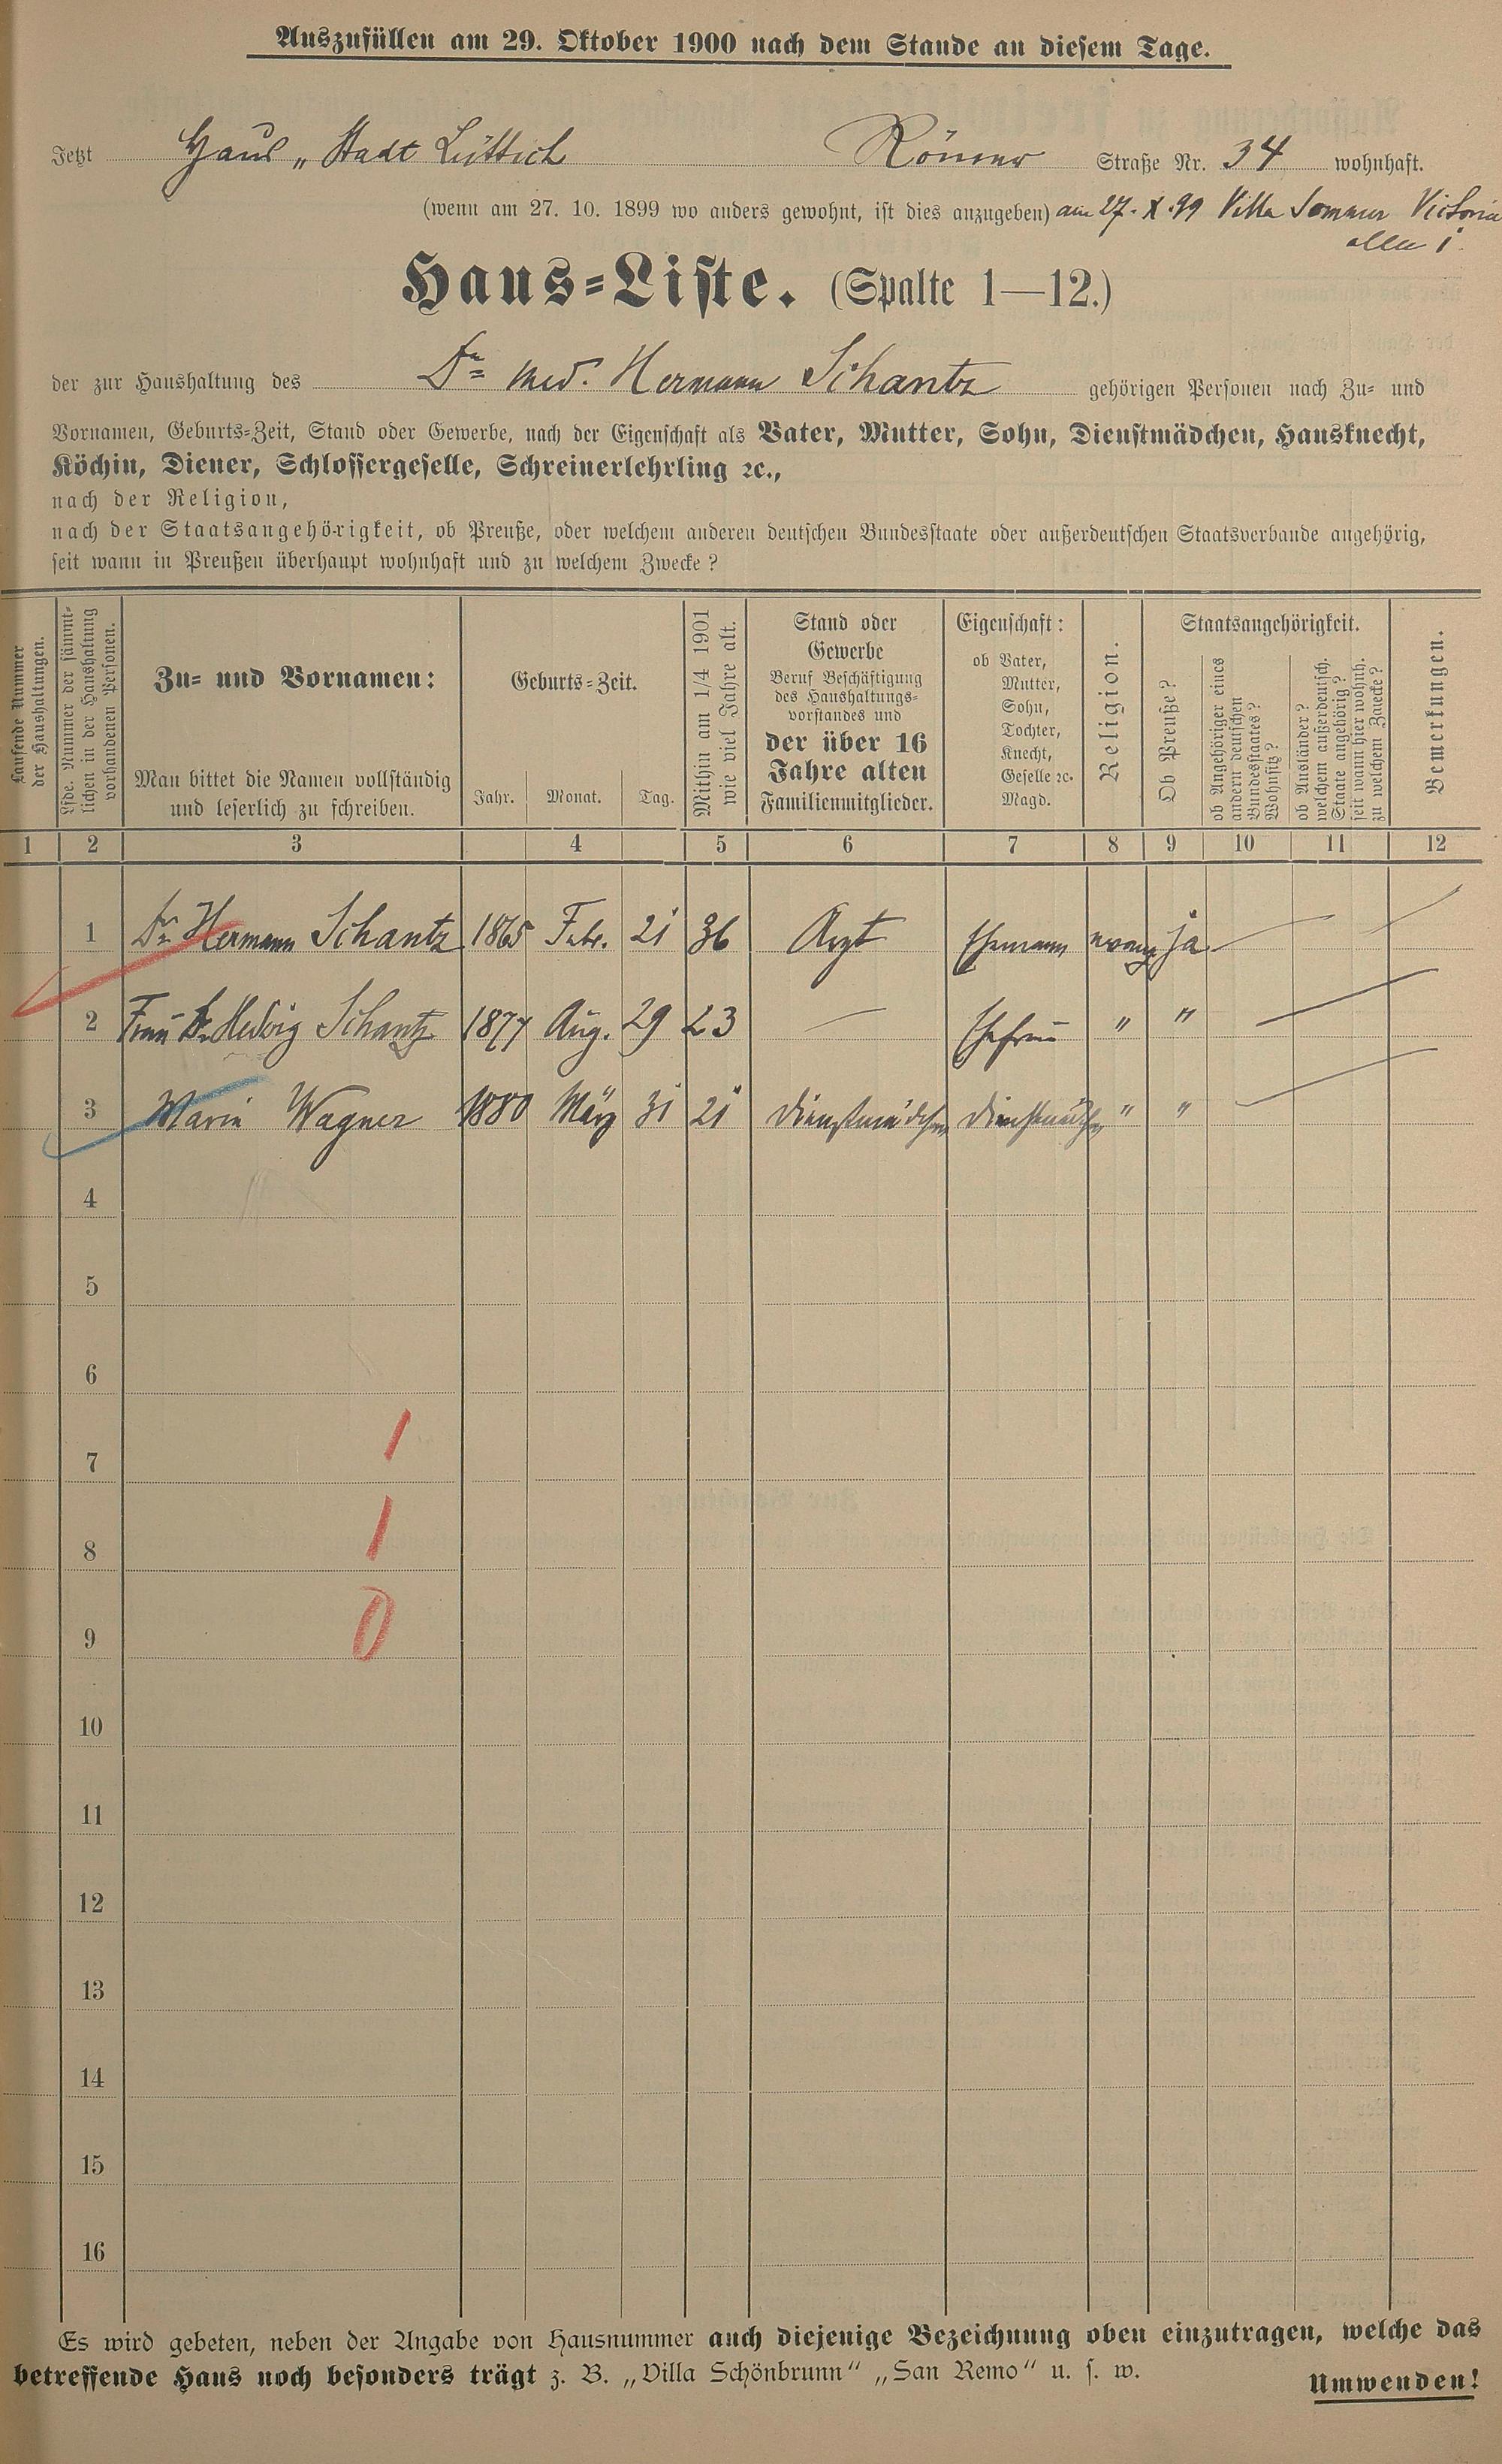 Auszufüllen am 29. Oktober 1900 nach dem Stande an diesem Tage.
Jetzt Haus „Stadt Lüttich Römer Straße Nr. 34 wohnhaft.
(wenn am 27. 10. 1899 wo anders gewohnt, ist dies anzugeben) am 27. X. 99 Villa Sommer Victoria
allee 1.
Haus-Liste. (Spalte 1—12.)
der zur Haushaltung des Dr med. Hermann Schantz gehörigen Personen nach Zu- und
Vornamen, Geburts-Zeit, Stand oder Gewerbe, nach der Eigenschaft als Vater, Mutter, Sohn, Dienstmädchen, Hausknecht,
Köchin, Diener, Schlossergeselle, Schreinerlehrling ꝛc.,
nach der Religion,
nach der Staatsangehörigkeit, ob Preuße, oder welchem anderen deutschen Bundesstaate oder außerdeutschen Staatsverbande angehörig,
seit wann in Preußen überhaupt wohnhaft und zu welchem Zwecke?
Laufende Nummer
der Haushaltungen.
Lfde. Nummer der sämmt-
lichen in der Haushaltung
vorhandenen Personen.
Zu- und Vornamen:
Man bittet die Namen vollständig
und leserlich zu schreiben.
Geburts-Zeit.
Jahr. Monat. Tag.
Mithin am 1/4 1901
wie viel Jahre alt.
Stand oder
Gewerbe
Beruf Beschäftigung
des Haushaltungs-
vorstandes und
der über 16
Jahre alten
Familienmitglieder.
Eigenschaft:
ob Vater,
Mutter,
Sohn,
Tochter,
Knecht,
Geselle ꝛc.
Magd.
Religion.
Staatsangehörigkeit.
Ob Preuße?
ob Angehöriger eines
andern deutschen
Bundesstaates?
Wohnsitz?
ob Ausländer?
welchem außerdeutsch.
Staate angehörig?
seit wann hier wohnh.
zu welchem Zwecke?
Bemerkungen.
1 2 3 4 5 6 7 8 9 10 11 12
1 Dr Hermann Schantz 1865 Febr. 21 36 Arzt Ehemann evang ja —
2 Frau Dr. Hedwig Schantz 1877 Aug. 29 23 — Ehefrau " " —
3 Marie Wagner 1880 März 31 21 Dienstmädchen Dienstmädchen " " —
4
5
6
7 1
8 1
9 0
10
11
12
13
14
15
16
Es wird gebeten, neben der Angabe von Hausnummer auch diejenige Bezeichnung oben einzutragen, welche das
betreffende Haus noch besonders trägt z. B. „Villa Schönbrunn“ „San Remo“ u. s. w.
Umwenden!